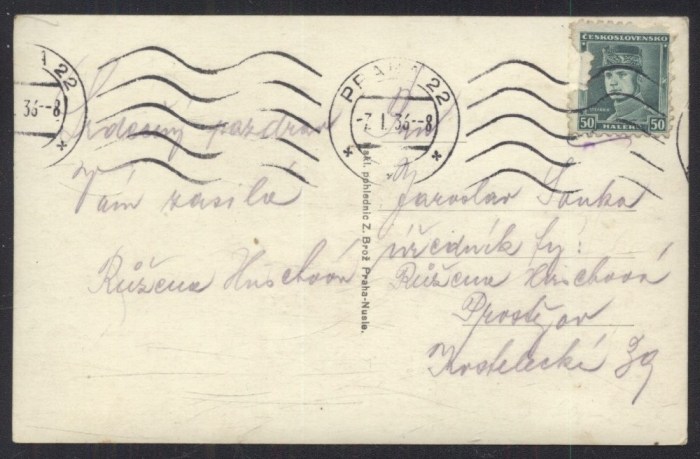 ČESKOSLOVENSKO
50 HALÉŘ 50
PRAHA 22
-7.I.36--8
A 22
36--8
Srdečný pozdrav
Vám zasílá
Růžena
Nakl. pohlednic Z. Brož Praha-Nusle.
Pan
Jaroslav
úředník fy:
Růžena
Prostějov
Kostelecká 39